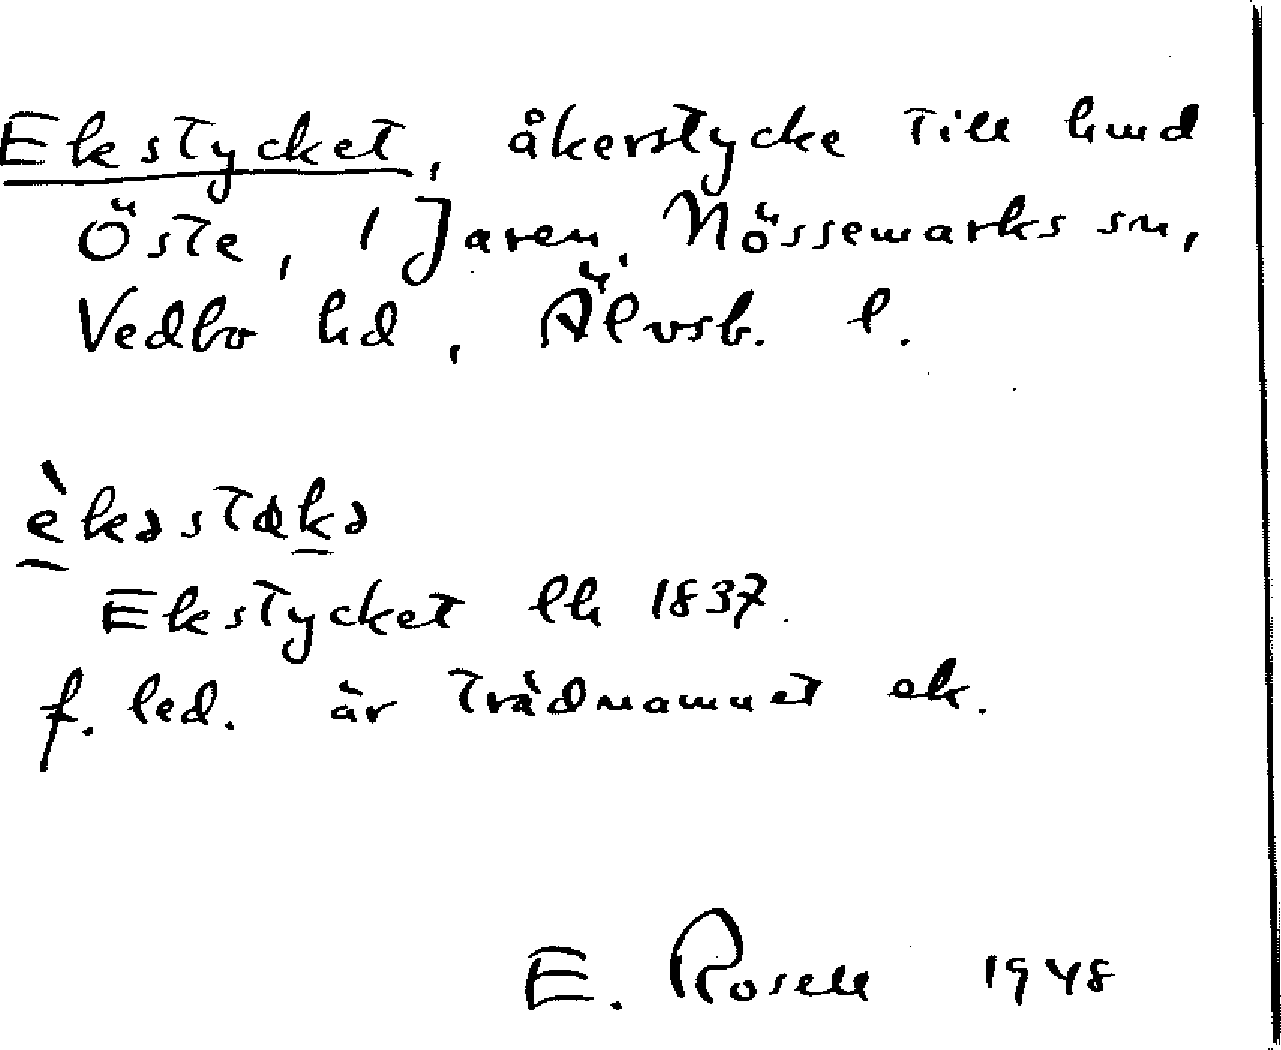 Ekstycket, åkerstycke till hmd
Öste, 1 Jaren, Nössemarks sn,
Vedbo hd, Älvsb. l.
Ekstycket lh 1837.
f. led. är trädnamnet ek.
E. Rosell 1948